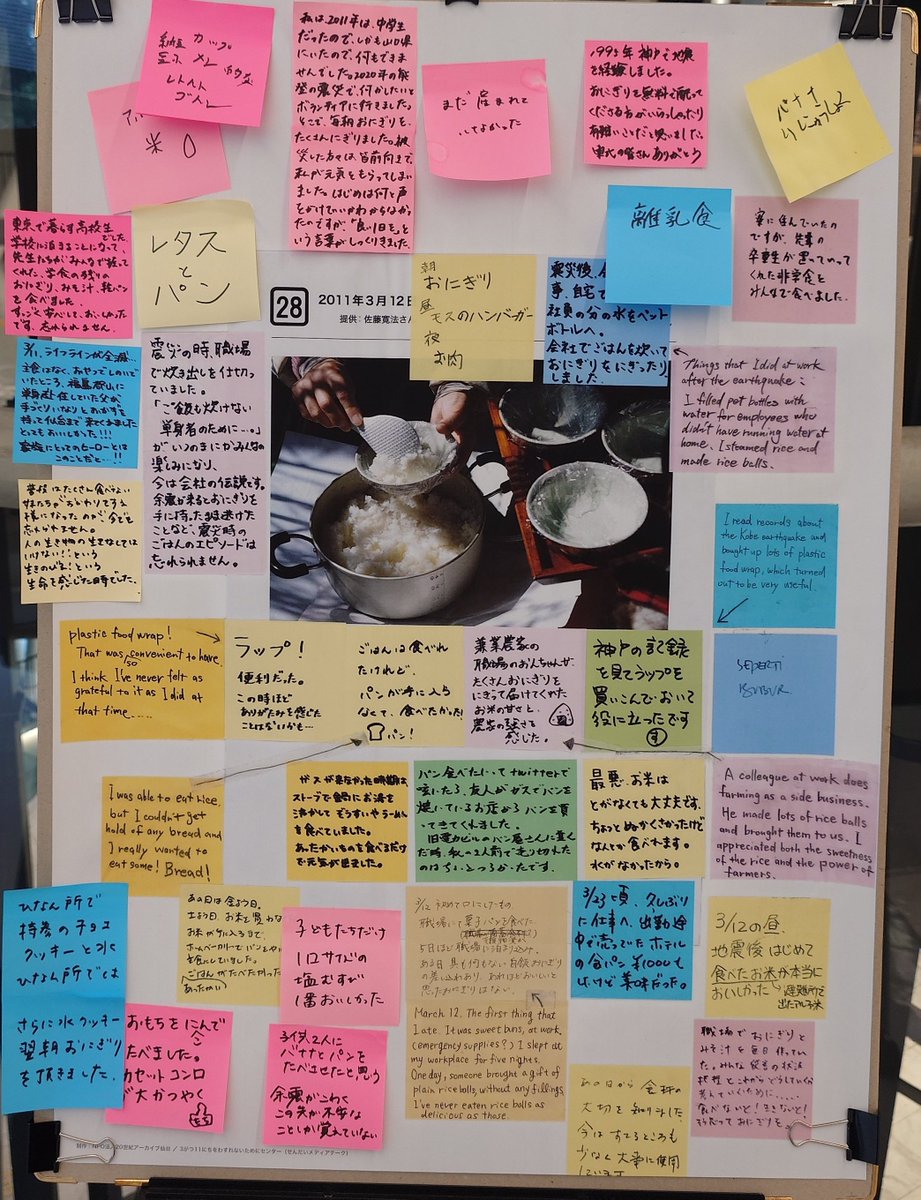 米
私は、2011年は、中学生
だったので、しかも山口県
にいたので、何もできま
せんでした。2020年の能
登の震災で、何かしたいと
ボランティアに行きました。
そこで、毎朝おにぎりを、
たくさんにぎりました。被
災した方々は皆前向きで
私が元気をもらってしまい
ました。はじめは何と声
をかけていいかわからなかっ
たのですが、「良い1日を」と
いう言葉がしっくりきました。
まだ産まれて
いなかった
1995年神戸で地震
を経験しました。
おにぎりを無料で配って
くださる方がいらっしゃったり
有難いことだと思いました。
東北の皆さんありがとう
バナナ
離乳食
寮に住んでいたの
ですが、先輩の
卒業生が置いていって
くれた非常食を
みんなで食べました。
東京で暮らす高校生
でした。
学校に泊まることになって、
先生たちがみんなで作って
くれた、学食の残りの
おにぎり、みそ汁、乾パン
を食べました。
すっごく安心して、おいしかった
です。忘れられません。
レタス
と
パン
28
2011年3月12日
提供：佐藤寛法さん
朝
おにぎり
昼
モスのハンバーガー
夜
お肉
震災後、
事、自宅
社員の分の水をペット
ボトルへ。
会社でごはんを炊いて
おにぎりをにぎったり
しました。
Things that I did at work
after the earthquake:
I filled pet bottles with
water for employees who
didn't have running water at
home. I steamed rice and
made rice balls.
3/11、ライフラインが全滅…
主食はなく、おやつでしのいで
いたところ、福島郡山に
単身赴任していた父が
手づくりいなりとおかずを
持って仙台まで来てくれました
とってもおいしかった!!!
家族にとってのヒーローとは
このことだと…!!
震災の時、職場
で炊き出しを仕切っ
ていました。
「ご飯も炊けない
単身者のために…」
がいつのまにかみんなの
楽しみになり、
今は会社の伝説です。
余震が来るとおにぎりを
手に持ったまま逃げた
ことなど、震災時の
ごはんのエピソードは
忘れられません。
普段はたくさん食べない
忘れられません。
人の生き物の生をなくしては
いけない!!という
生命を感じた日時でした。
I read records about
the Kobe earthquake and
bought up lots of plastic
food wrap, which turned
out to be very useful.
plastic food wrap!
That was so convenient to have.
I think I've never felt as
grateful to it as I did at
that time.....
ラップ！
便利だった。
この時ほど
ありがたみを感じた
ことはないかも…
ごはんは食べれ
たけれど、
パンが手に入ら
なくて、食べたかった！
パン！
兼業農家の
職場のおんちゃんが、
たくさんおにぎりを
にぎって届けてくれた
お米の甘さと、
農家の強さを
感じた。
神戸の記録
を見てラップを
買いこんでおいて
役に立ったです
す
SEPERTI
BUBUR
I was able to eat rice,
but I couldn't get
hold of any bread and
I really wanted to
eat some! Bread!
ガスが来なかった時期は、
ストーブで鍋にお湯を
沸かして ぞうすいやラーメン
を食べていました。
あったかいものを食べるだけ
で元気が出ました。
パン食べたいってtwitterで
呟いたら、友人がガスでパンを
焼いているお店からパンを買っ
てきてくれました。
旧電力ビルのパン屋さんに並ん
だ時、私の2人前で売り切れた
のはちいとつらかったです。
最悪、お米は
とがなくても大丈夫です。
ちょっとぬかくさかったけど
なんとか食べれます。
水がなかったから。
A colleague at work does
farming as a side business.
He made lots of rice balls
and brought them to us. I
appreciated both the sweetness
of the rice and the power of
farmers.
ひなん所で
持参のチョコ
クッキーと水
ひなん所では
さらに水、クッキー
翌朝おにぎり
を頂きました。
あの日は金よう日。
土よう日、お米を買わな
お米が手に入るまで、
ホームベーカリーでパンを
ごはんがたべたかった
あったかい
子どもたちだけ
1口サイズの
塩むすび
1番おいしかった
3/12 初めて口にしたもの
職場にて菓子パンを食べた
5日ほど職場に泊まり込み
ある日具も何もない白飯おにぎり
の差し入れあり、あれほどおいしいと
思ったおにぎりはない。
March 12. The first thing that
I ate. It was sweet buns, at work.
(emergency supplies?) I slept at
my workplace for five nights.
One day, someone brought a gift of
plain rice balls, without any fillings.
I've never eaten rice balls as
delicious as those.
3/23頃、久しぶり
に仕事へ、出勤途
中で売ってたホテル
の食パン ¥1000も
したけど美味だった。
3/12の昼、
地震後はじめて
食べたお米が本当に
おいしかった
避難所で
出たアルファ米
おもちをにんで
たべました。
カセットコンロ
が大かつやく
子供2人に
バナナとパンを
たべさせたと思う
余震がこわく
この先が不安な
ことしか覚えていない
あの日から 食料の
大切を知りました
今は すてるところも
少なく大事に使用
しています
職場でおにぎりと
みそ汁を毎日作ってい
た。みんな災害の状況
食べないと！生きないと！
制作：NPO法人20世紀アーカイブ仙台 / 3がつ11にちをわすれないためにセンター（せんだいメディアテーク）